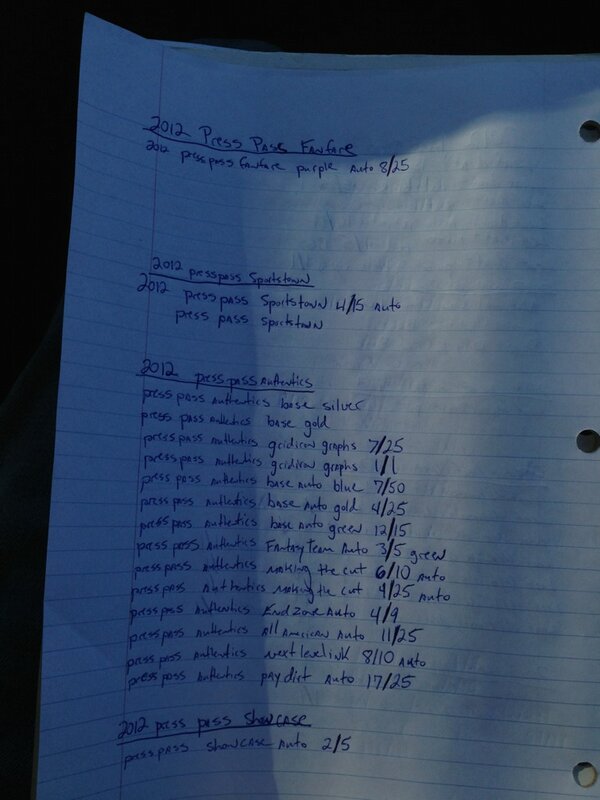 2012 Press Pass Fanfare
2012 press pass fanfare purple Auto 8/25
2012 press pass Sportstown
2012 press pass Sportstown 4/15 Auto
press pass Sportstown
2012 press pass Authentics
press pass Authentics base silver
press pass Authentics base gold
press pass Authentics gridiron graphs 7/25
press pass Authentics gridiron graphs 1/1
press pass Authentics base Auto blue 7/50
press pass Authentics base Auto gold 4/25
press pass Authentics base Auto green 12/15
press pass Authentics Fantasy Team Auto 3/5 green
press pass Authentics making the cut 6/10 Auto
press pass Authentics making the cut 9/25 Auto
press pass Authentics End Zone Auto 4/9
press pass Authentics All American Auto 11/25
press pass Authentics next level ink 8/10 Auto
press pass Authentics pay dirt Auto 17/25
2012 press pass Showcase
press pass showcase Auto 2/5